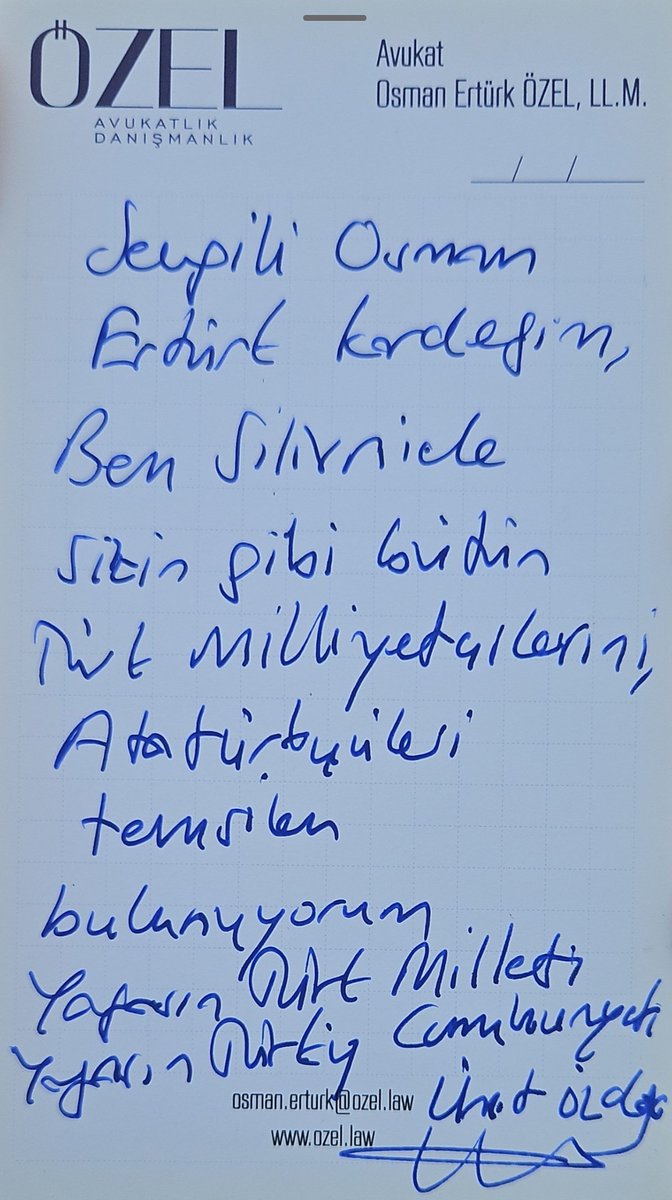 ÖZEL
AVUKATLIK
DANIŞMANLIK
Avukat
Osman Ertürk ÖZEL, LL.M.
/ /
Sevgili Osman
Ertürk kardeşim,
Ben Silivride
sizin gibi bütün
Türk Milliyetçilerini,
Atatürkçüleri
temsilen
bulunuyorum
Yaşasın Türk Milleti
Yaşasın Türkiye Cumhuriyeti
Ümit Özdağ
osman.erturk@ozel.law
www.ozel.law